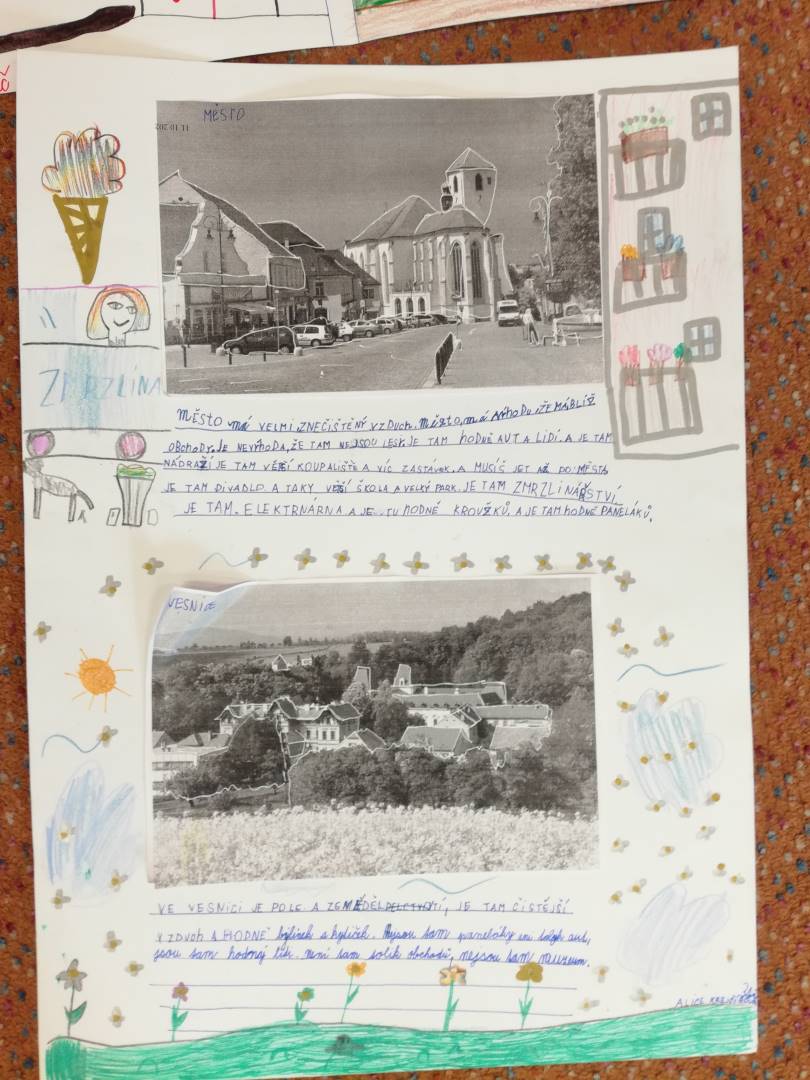 MĚSTO
11 10 202
ZMRZLINA
MĚSTO má VELMI ZNEČIŠTĚNÝ VZDUCH. MĚSTO, má VÝhoDU ŽE MÁ BLÍŽ
OBchoDY. JE NEVÝhODA, ŽE TAM NEJSOU LESY. JE TAM hODNĚ AUT A LIDI. A JE TAM
NÁDRAŽÍ JE TAM VĚTŠÍ KOUPALIŠTĚ A VÍC ZASTÁVEK. A MUSÍŠ JET AŽ DO MĚSTA
JE TAM DIVADLO A TAKY VĚTŠÍ ŠKOLA A VELKÝ PARK. JE TAM ZMRZLINÁŘSTVÍ
JE TAM. ELEKTRNÁRNA A JE TU hODNĚ KROUŽKŮ. A JE TAM hODNĚ PANELÁKŮ.
VESNICE
VE VESNICI JE POLE A ZEMĚDĚL JE TAM ČISTĚJŠÍ
VZDUCH A HODNĚ bylinek a kytiček. Nejsou tam paneláky ani tolik aut,
jsou tam hodný lidi. není tam tolik obchodů, nejsou tam muzeum.
ALICE